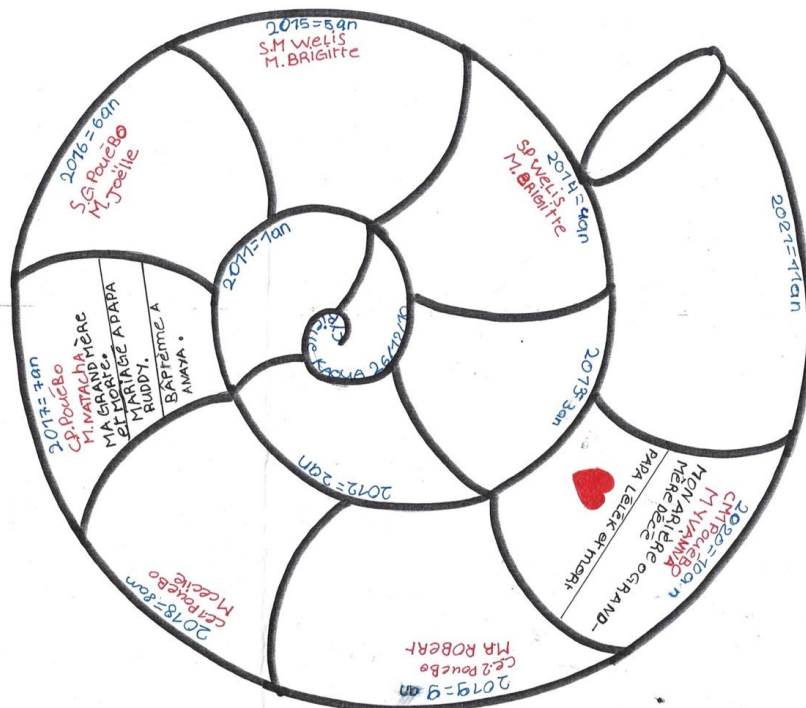 2011=1an
2012=2an
2013=3an
2014=4an
SP WELIS
M. BRIGITTE
2015=5an
S.M WELIS
M. BRIGITTE
2016=6an
S.G POUÉBO
M JOËLLE
2017=7an
CP. POUÉBO
M. NATACHA.
MA GRAND MÈRE
et MORTE.
MARIAGE A PAPA
RUDDY.
BÂPTÈME A
ANAYA.
2018=8an
CE1 POUÉBO
M CECILE
2019=9 an
CE2 POUEBO
MR ROBERT
2020=10an
CM1 POUÉBO
M YVANNA
MON ARIÈRE OGRAND-
MÈRE DÉCÉ
PAPA LÉLÈK et MORT
2021=11an